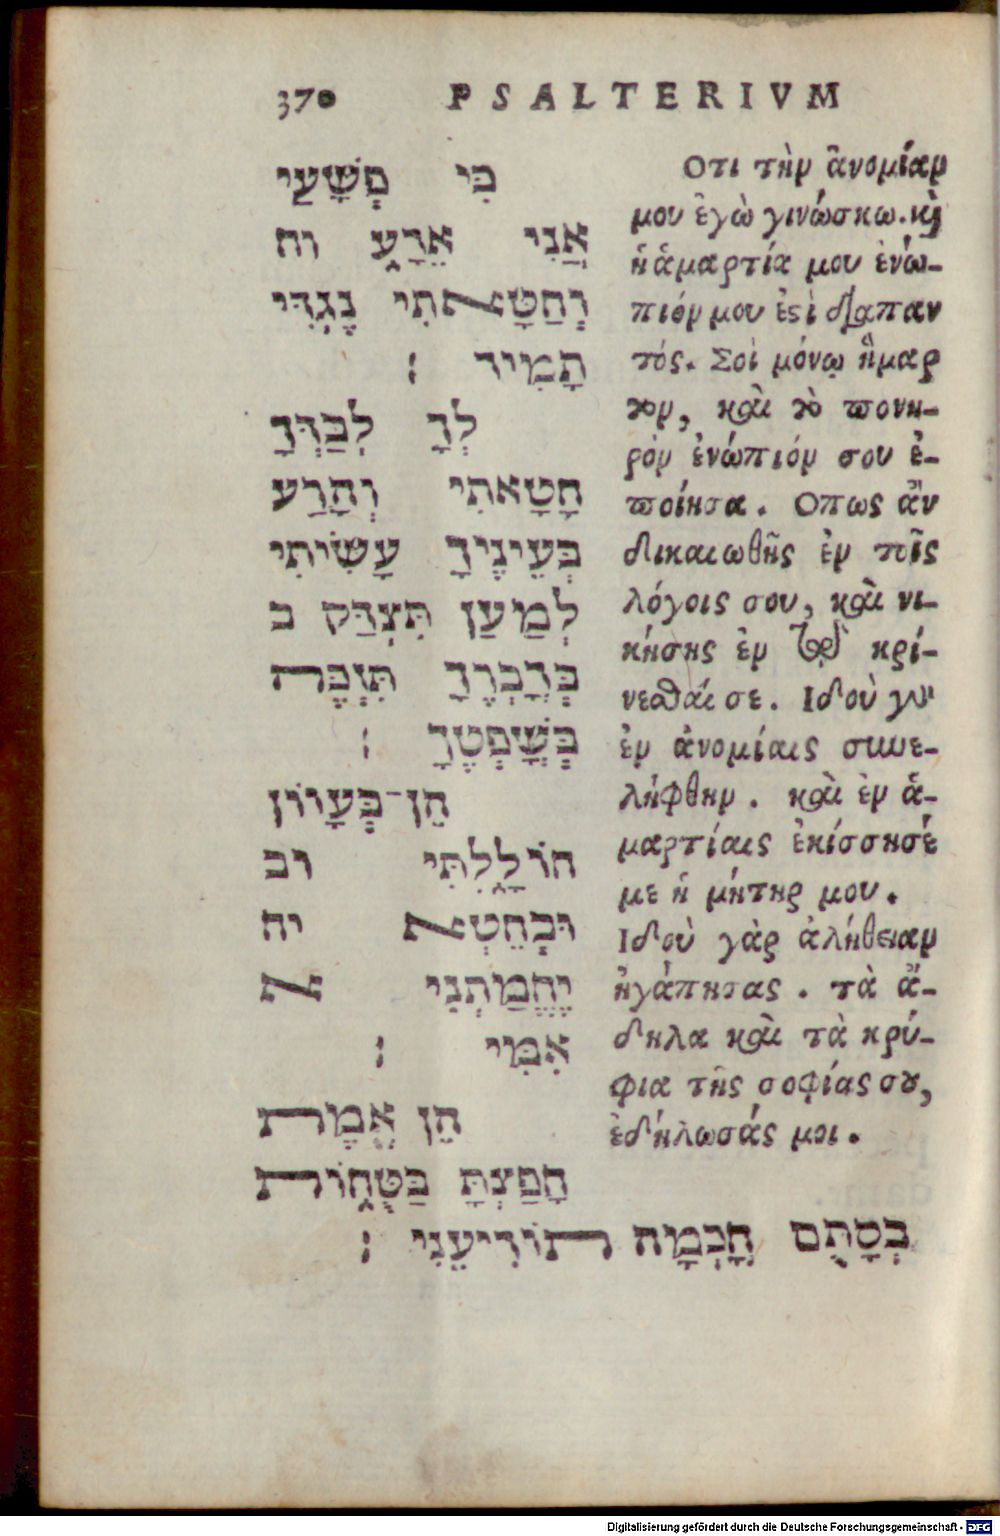 370 PSALTERIVM
כִּי פְשָׁעַי
אֲנִי אֵדָ֑ע וח
וְחַטָּאתִי נֶגְדִּי
תָמִיד ׃
לְךָ לְבַדְּךָ
חָטָאתִי וְהָרַע
בְּעֵינֶיךָ עָשִׂיתִי
לְמַעַן תִּצְדַּק ב
בְּדָבְרֶךָ תִּזְכֶּה
בְּשָׁפְטֶךָ ׃
הֵן־בְּעָווֹן
חוֹלָ֑לְתִּי וב
וּבְּחֵטְא יח
יֶחֱמַתְנִי א
אִמִּי ׃
הֵן אֱמֶת
חָפַצְתָּ בַּטֻּח֑וֹת
בְסָתֻם חָכְמָה תוֹדִיעֵנִי ׃
Οτι τὴν ἀνομίαν
μου ἐγὼ γινώσκω. καὶ
ἡ ἁμαρτία μου ἐνώ-
πιόν μου ἐστὶ διαπαν
τός. Σοὶ μόνῳ ἥμαρ
τον, καὶ τὸ πονη-
ρὸν ἐνώπιόν σου ἐ-
ποίησα. Οπως ἂν
δικαιωθῇς ἐν τοῖς
λόγοις σου, καὶ νι-
κήσῃς ἐν τῷ κρί-
νεσθαί σε. Ιδοὺ γὰρ
ἐν ἀνομίαις συνε-
λήφθην. καὶ ἐν ἁ-
μαρτίαις ἐκίσσησέ
με ἡ μήτηρ μου.
Ιδοὺ γὰρ ἀλήθειαν
ἠγάπησας. τὰ ἄ-
δηλα καὶ τὰ κρύ-
φια τῆς σοφίας σου,
ἐδήλωσάς μοι.
Digitalisierung gefördert durch die Deutsche Forschungsgemeinschaft - DFG